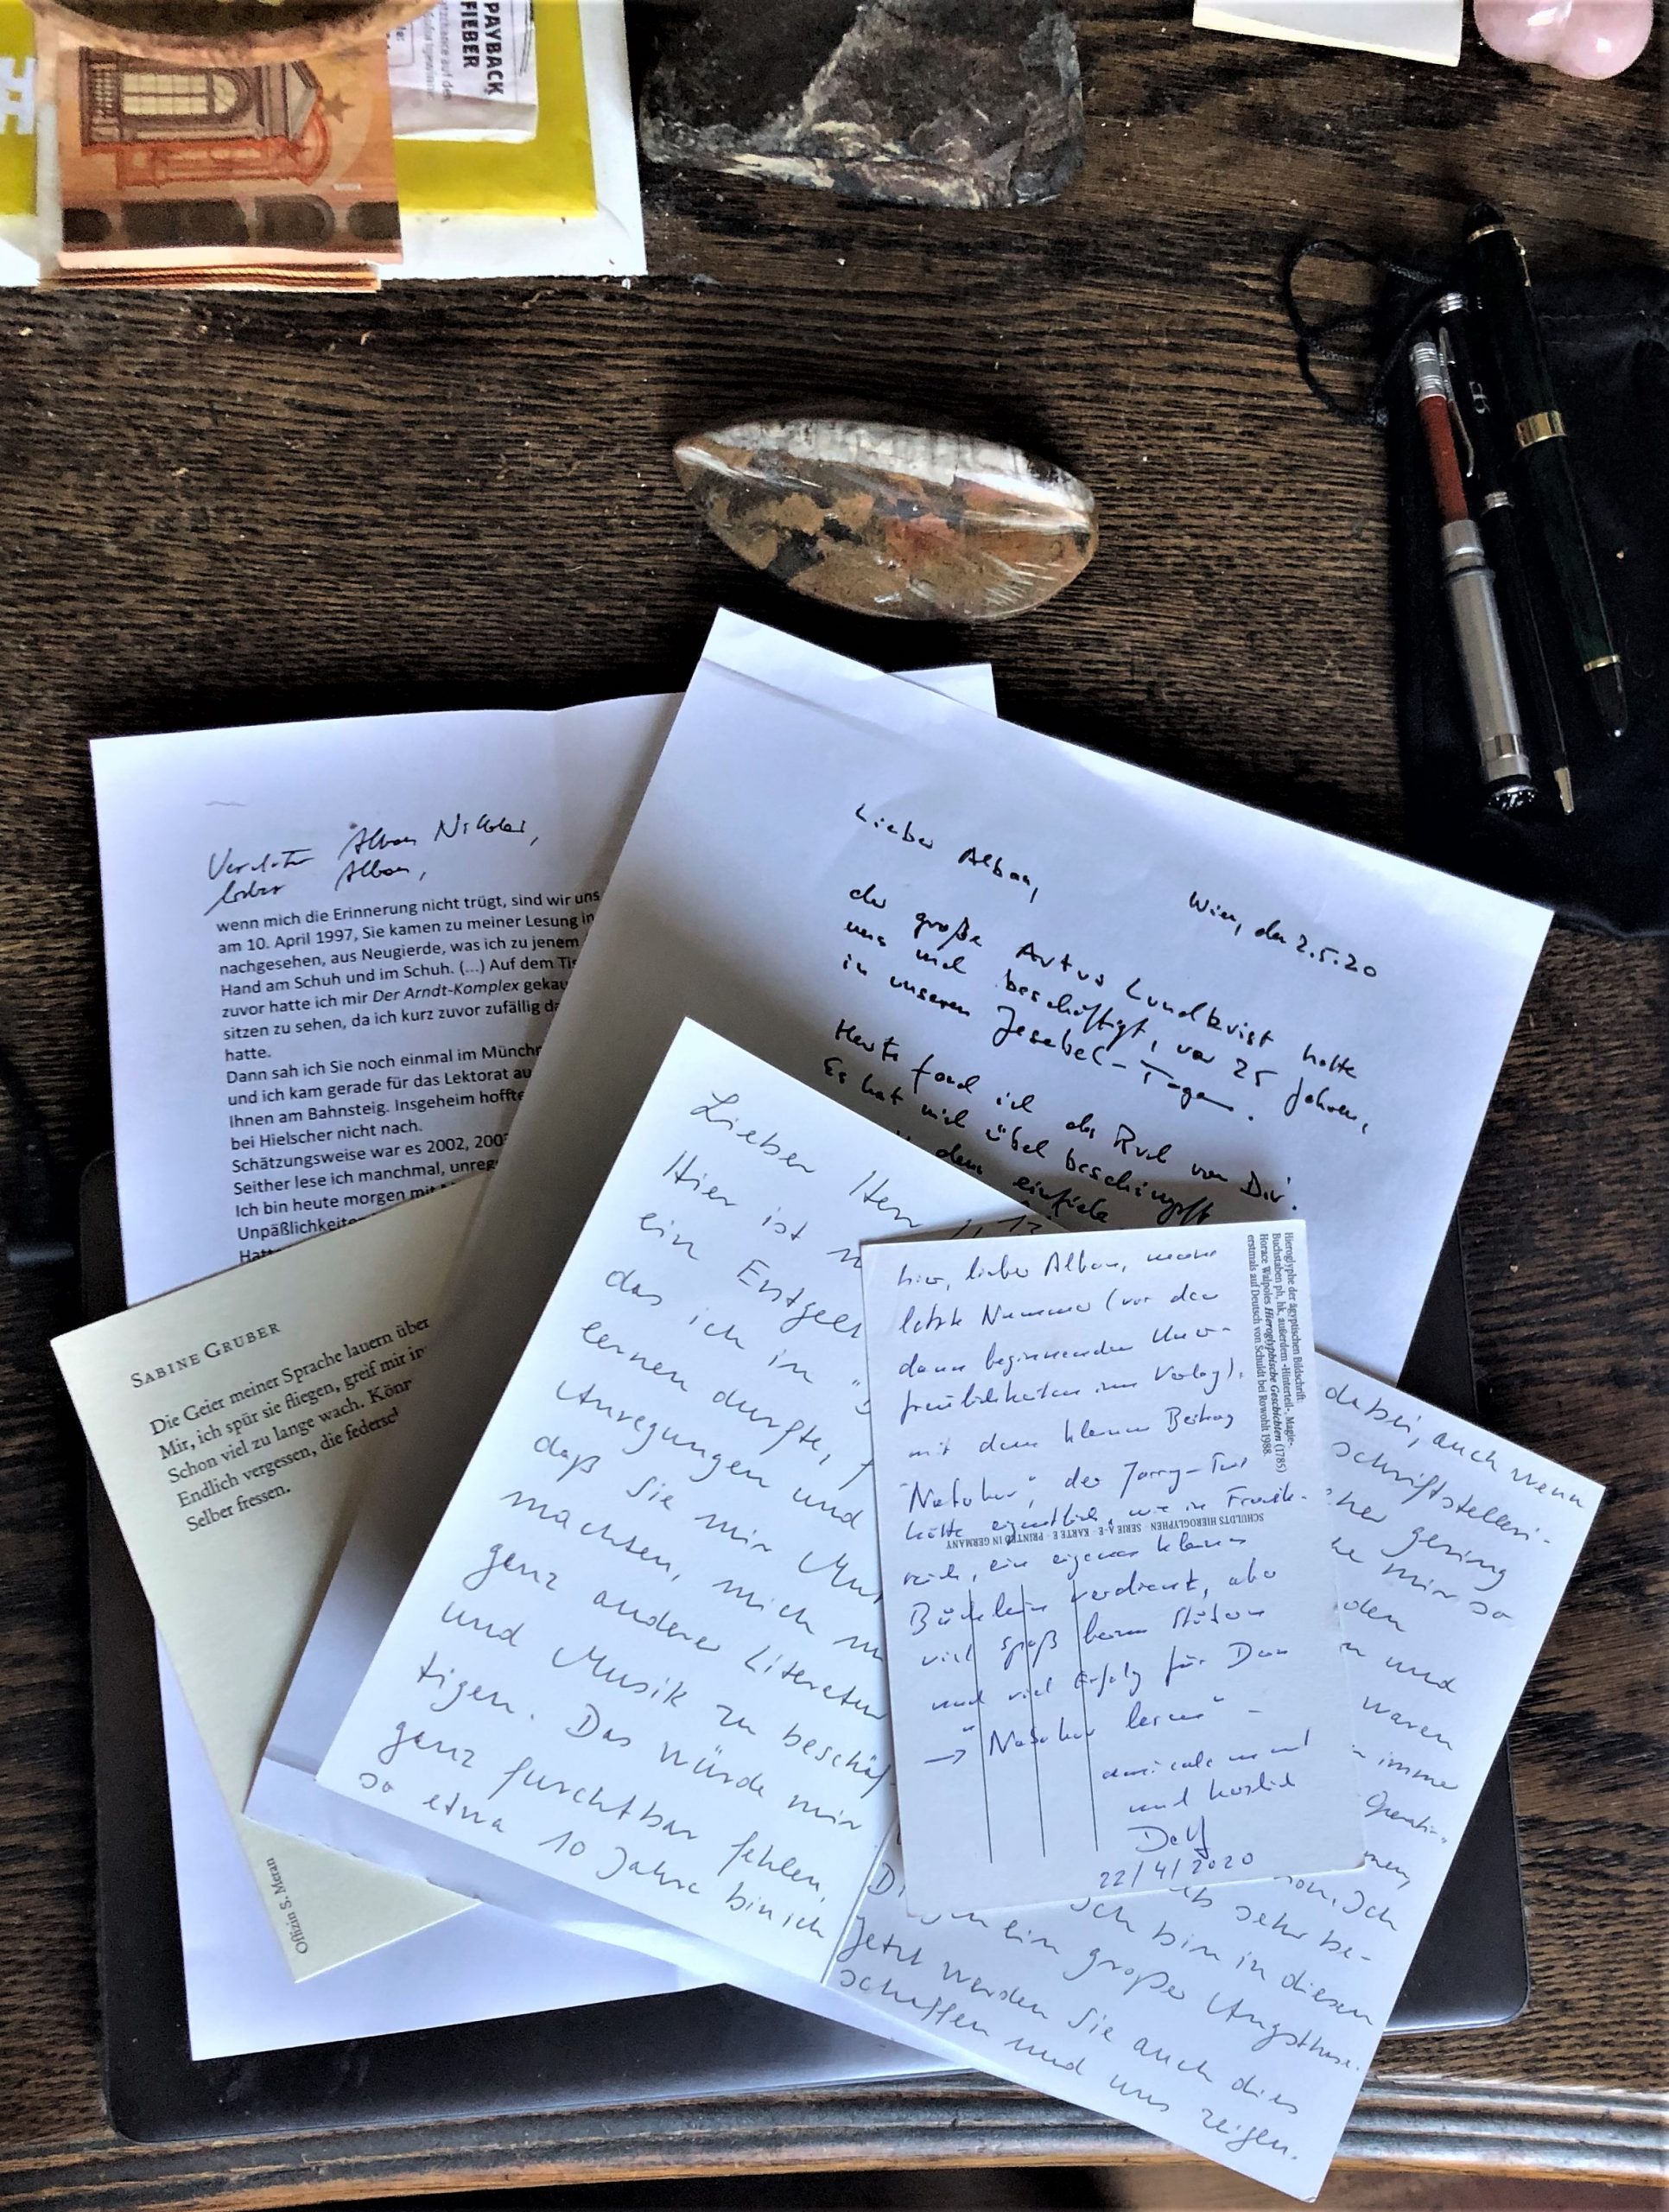 PAYBACK
FIEBER
Alban Nikolai,
Alban,
wenn mich die Erinnerung nicht trügt, sind wir uns
am 10. April 1997, Sie kamen zu meiner Lesung in
nachgesehen, aus Neugierde, was ich zu jenem
Hand am Schuh und im Schuh. (...) Auf dem Tis
zuvor hatte ich mir Der Arndt-Komplex gekau
sitzen zu sehen, da ich kurz zuvor zufällig da
hatte.
Dann sah ich Sie noch einmal im Münch
und ich kam gerade für das Lektorat au
Ihnen am Bahnsteig. Insgeheim hoffte
bei Hielscher nicht nach.
Schätzungsweise war es 2002, 200
Seither lese ich manchmal, unreg
Ich bin heute morgen mit
Unpäßlichkeite
Hatt
Lieber Alban,
Wien, den 2.5.20
der große Artus Lundkvist hatte
uns mal beschäftigt, vor 25 Jahren,
in unseren Jesebel-Tagen.
Heute fand ich das Rud von Dir.
Es hat mich übel beschimpft
dem einfiele
SABINE GRUBER
Die Geier meiner Sprache lauern über
Mir, ich spür sie fliegen, greif mir in
Schon viel zu lange wach. Könn
Endlich vergessen, die federsc
Selber fressen.
Offizin S. Meran
Lieber Herr
Hier ist
ein Entgelt
das ich in
lernen durfte,
Anregungen und
daß Sie mir Mu
machten, mich
ganz anderer Literatur
und Musik zu beschäf-
tigen. Das würde mir
ganz furchtbar fehlen,
so etwa 10 Jahre bin ich
hier, lieber Alban, meine
letzte Nummer (vor den
dann beginnenden Uner-
freulichkeiten im Verlag),
mit dem kleinen Beitrag
der Jarry-Text
hätte eigentlich, wie in Frank-
reich, ein eigenes kleines
Büchlein verdient, aber
viel Spaß beim Stöbern
und viel Erfolg für Dein
→ lernen" –
amicalement
und herzlich
22/4/2020
Hieroglyphe der ägyptischen Bildschrift:
Buchstaben ph, hk, außerdem -Hinterteil-, Magie-.
Horace Walpoles Hieroglyphische Geschichten (1785)
erstmals auf Deutsch von Schuldt bei Rowohlt 1988.
SCHULDTS HIEROGLYPHEN · SERIE A-E · KARTE E · PRINTED IN GERMANY
dabei, auch wenn
schriftstelleri-
cher gering
he mir so
den
n und
waren
imme
men,
ion. Ich
b sehr be-
Ich bin in diesen
ein großer Angsthase.
Jetzt werden Sie auch dies
schaffen und uns zeigen.